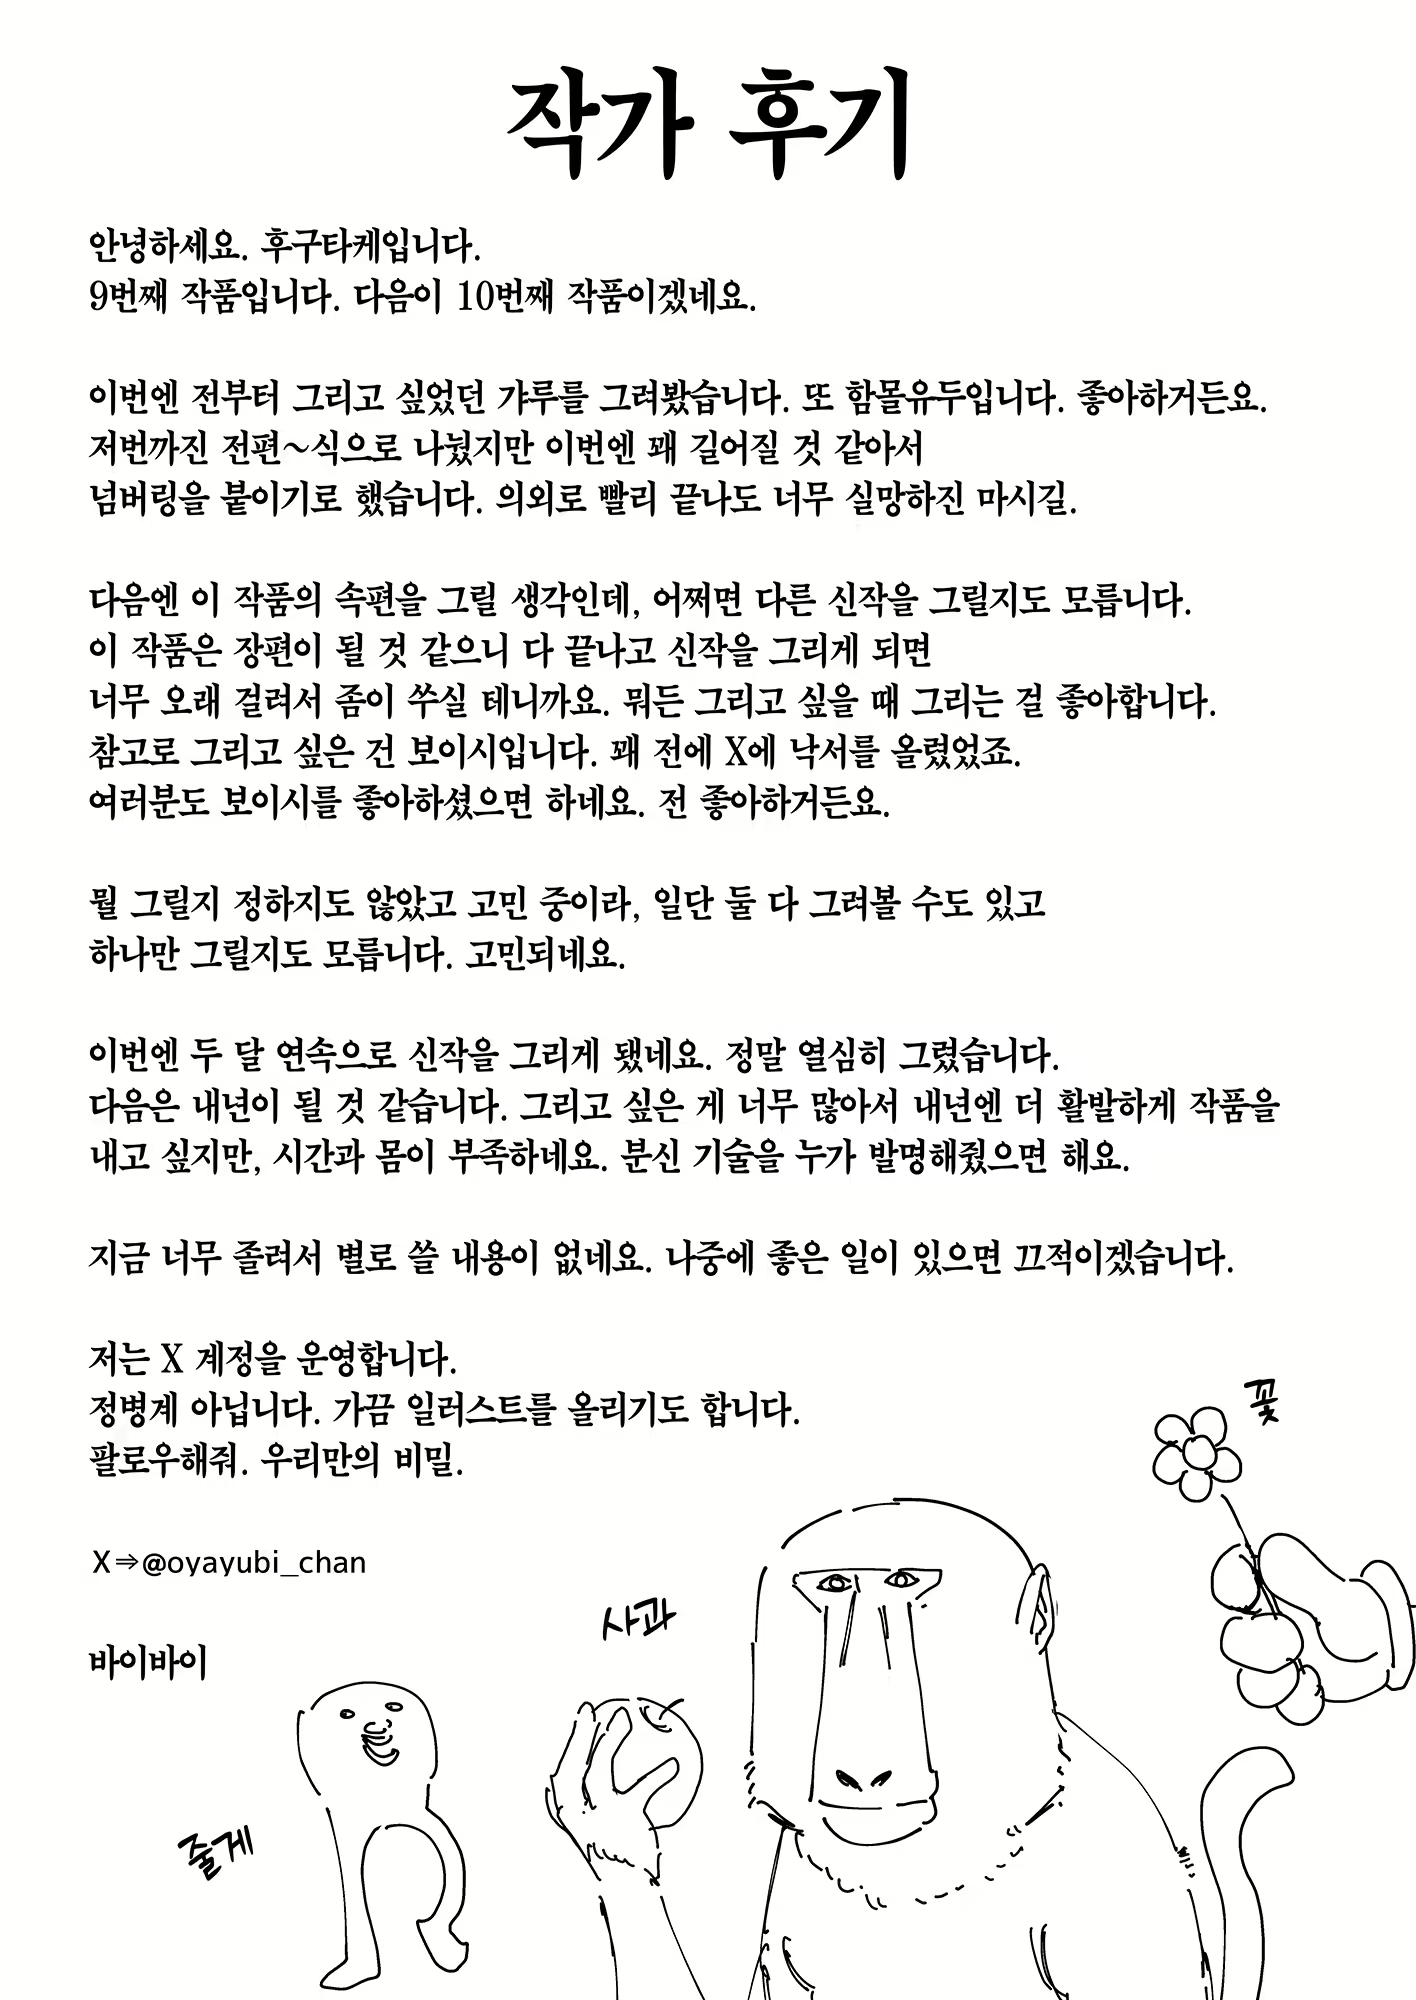 작가 후기
안녕하세요. 후구타케입니다.
9번째 작품입니다. 다음이 10번째 작품이겠네요.
이번엔 전부터 그리고 싶었던 갸루를 그려봤습니다. 또 함몰유두입니다. 좋아하거든요.
저번까진 전편~식으로 나눴지만 이번엔 꽤 길어질 것 같아서
넘버링을 붙이기로 했습니다. 의외로 빨리 끝나도 너무 실망하진 마시길.
다음엔 이 작품의 속편을 그릴 생각인데, 어쩌면 다른 신작을 그릴지도 모릅니다.
이 작품은 장편이 될 것 같으니 다 끝나고 신작을 그리게 되면
너무 오래 걸려서 좀이 쑤실 테니까요. 뭐든 그리고 싶을 때 그리는 걸 좋아합니다.
참고로 그리고 싶은 건 보이시입니다. 꽤 전에 X에 낙서를 올렸었죠.
여러분도 보이시를 좋아하셨으면 하네요. 전 좋아하거든요.
뭘 그릴지 정하지도 않았고 고민 중이라, 일단 둘 다 그려볼 수도 있고
하나만 그릴지도 모릅니다. 고민되네요.
이번엔 두 달 연속으로 신작을 그리게 됐네요. 정말 열심히 그렸습니다.
다음은 내년이 될 것 같습니다. 그리고 싶은 게 너무 많아서 내년엔 더 활발하게 작품을
내고 싶지만, 시간과 몸이 부족하네요. 분신 기술을 누가 발명해줬으면 해요.
지금 너무 졸려서 별로 쓸 내용이 없네요. 나중에 좋은 일이 있으면 끄적이겠습니다.
저는 X 계정을 운영합니다.
정병계 아닙니다. 가끔 일러스트를 올리기도 합니다.
팔로우해줘. 우리만의 비밀.
X⇒@oyayubi_chan
바이바이
꽃
사과
줄게